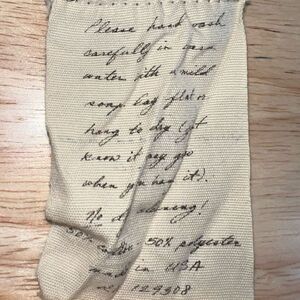 Please hand wash
carefully in warm
water with a mild
soap. Lay flat or
hang to dry (just
know it may grow
when you hang it).
No dry cleaning!
50% cotton 50% polyester
made in USA
129308